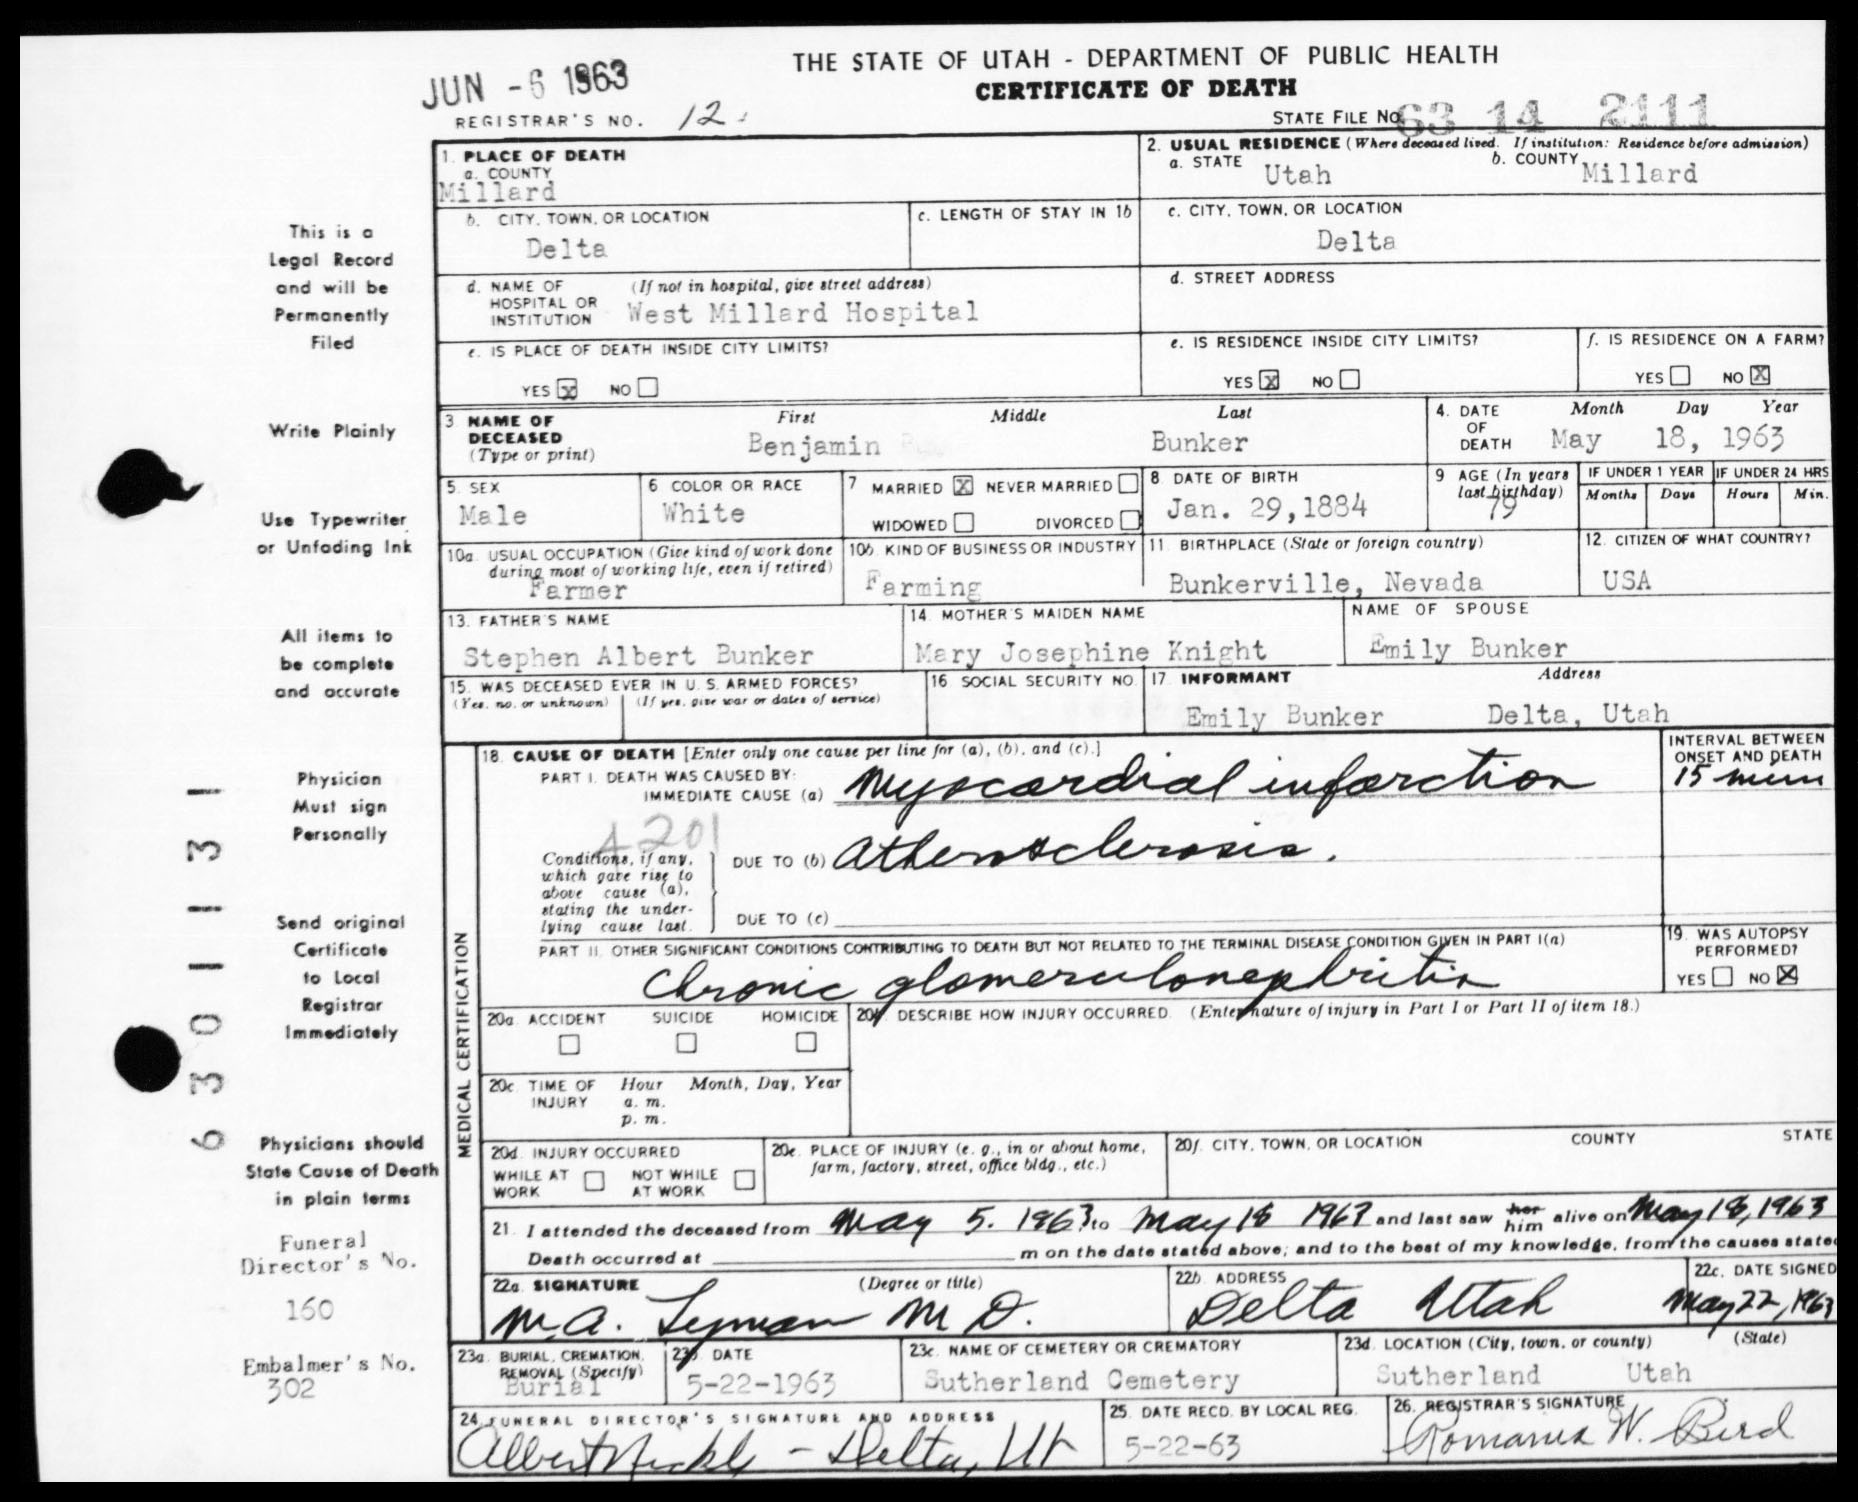 THE STATE OF UTAH - DEPARTMENT OF PUBLIC HEALTH
JUN -6 1963
CERTIFICATE OF DEATH
REGISTRAR'S NO. 12.
STATE FILE NO. 63 14 2111
1. PLACE OF DEATH
a. COUNTY
Millard
2. USUAL RESIDENCE (Where deceased lived. If institution: Residence before admission)
a. STATE Utah b. COUNTY Millard
b. CITY, TOWN, OR LOCATION
Delta
c. LENGTH OF STAY IN 1b
c. CITY, TOWN, OR LOCATION
Delta
d. NAME OF HOSPITAL OR INSTITUTION (If not in hospital, give street address)
West Millard Hospital
d. STREET ADDRESS
e. IS PLACE OF DEATH INSIDE CITY LIMITS?
YES X NO
e. IS RESIDENCE INSIDE CITY LIMITS?
YES X NO
f. IS RESIDENCE ON A FARM?
YES NO X
3. NAME OF DECEASED (Type or print)
First Middle Last
Benjamin Bunker
4. DATE OF DEATH
Month Day Year
May 18, 1963
5. SEX
Male
6 COLOR OR RACE
White
7 MARRIED X NEVER MARRIED
WIDOWED DIVORCED
8 DATE OF BIRTH
Jan. 29,1884
9 AGE (In years last birthday)
79
IF UNDER 1 YEAR
Months Days
IF UNDER 24 HRS
Hours Min.
10a. USUAL OCCUPATION (Give kind of work done during most of working life, even if retired)
Farmer
10b. KIND OF BUSINESS OR INDUSTRY
Farming
11. BIRTHPLACE (State or foreign country)
Bunkerville, Nevada
12. CITIZEN OF WHAT COUNTRY?
USA
13. FATHER'S NAME
Stephen Albert Bunker
14. MOTHER'S MAIDEN NAME
Mary Josephine Knight
NAME OF SPOUSE
Emily Bunker
15. WAS DECEASED EVER IN U. S. ARMED FORCES?
(Yes, no, or unknown) (If yes, give war or dates of service)
16 SOCIAL SECURITY NO.
17. INFORMANT Address
Emily Bunker Delta, Utah
MEDICAL CERTIFICATION
18. CAUSE OF DEATH [Enter only one cause per line for (a), (b), and (c).]
INTERVAL BETWEEN ONSET AND DEATH
PART I. DEATH WAS CAUSED BY:
IMMEDIATE CAUSE (a) Myocardial infarction
15 min
4201
Conditions, if any, which gave rise to above cause (a), stating the underlying cause last.
DUE TO (b) Atherosclerosis.
DUE TO (c)
PART II. OTHER SIGNIFICANT CONDITIONS CONTRIBUTING TO DEATH BUT NOT RELATED TO THE TERMINAL DISEASE CONDITION GIVEN IN PART I(a)
Chronic glomerulonephritis
19. WAS AUTOPSY PERFORMED?
YES NO X
20a. ACCIDENT SUICIDE HOMICIDE
20b. DESCRIBE HOW INJURY OCCURRED. (Enter nature of injury in Part I or Part II of item 18.)
20c. TIME OF INJURY Hour Month, Day, Year
a. m.
p. m.
20d. INJURY OCCURRED
WHILE AT WORK NOT WHILE AT WORK
20e. PLACE OF INJURY (e. g., in or about home, farm, factory, street, office bldg., etc.)
20f. CITY, TOWN, OR LOCATION COUNTY STATE
21. I attended the deceased from May 5. 1963, to May 18 1963 and last saw her him alive on May 18, 1963
Death occurred at m on the date stated above; and to the best of my knowledge, from the causes stated
22a. SIGNATURE (Degree or title)
M. A. Lyman M D.
22b. ADDRESS
Delta Utah
22c. DATE SIGNED
May 22, 1963
23a. BURIAL, CREMATION, REMOVAL (Specify)
Burial
23b. DATE
5-22-1963
23c. NAME OF CEMETERY OR CREMATORY
Sutherland Cemetery
23d. LOCATION (City, town, or county) (State)
Sutherland Utah
24. FUNERAL DIRECTOR'S SIGNATURE AND ADDRESS
Albert Nickle - Delta, Ut
25. DATE RECD. BY LOCAL REG.
5-22-63
26. REGISTRAR'S SIGNATURE
Romania W. Bird
This is a
Legal Record
and will be
Permanently
Filed
Write Plainly
Use Typewriter
or Unfading Ink
All items to
be complete
and accurate
Physician
Must sign
Personally
Send original
Certificate
to Local
Registrar
Immediately
Physicians should
State Cause of Death
in plain terms
Funeral
Director's No.
160
Embalmer's No.
302
6 3 0 1 1 3 1